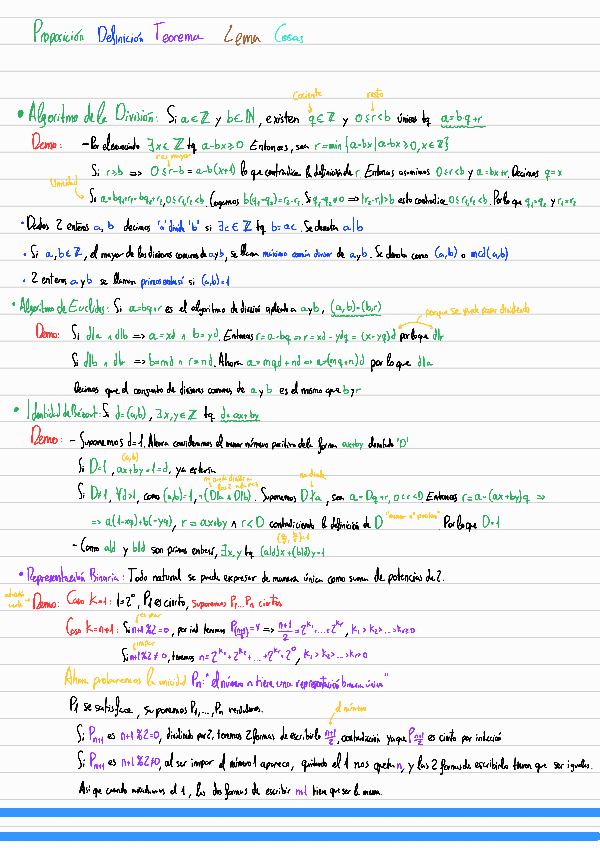 Proposición Definición Teorema Lema Cosas
cociente resto
• Algoritmo de la División: Si a∈ℤ y b∈ℕ, existen q∈ℤ y 0≤r<b únicos tq a=bq+r
Demo: - Por el enunciado ∃x∈ℤ tq a-bx≥0. Entonces, sea r=min{a-bx | a-bx≥0, x∈ℤ}
r es mayor
Si r>b ⇒ 0≤r-b=a-b(x+1) lo que contradice la definición de r. Entonces asumimos 0≤r<b y a=bx+r. Decimos q=x
Unicidad
Si a=bq₁+r₁=bq₂+r₂, 0≤r₁,r₂<b. Cogemos b(q₁-q₂)=r₂-r₁. Si q₁-q₂≠0 ⇒ |r₂-r₁|>b esto contradice 0≤r₁,r₂<b. Por lo que q₁=q₂ y r₁=r₂
• Dados 2 enteros a, b decimos "a divide b" si ∃c∈ℤ tq b=ac. Se denota a|b
• Si a,b∈ℤ, el mayor de los divisores comunes de a y b, se llama máximo común divisor de a y b. Se denota como (a,b) o mcd(a,b)
• 2 enteros a y b se llaman primos entre sí si (a,b)=1
• Algoritmo de Euclides: Si a=bq+r es el algoritmo de división aplicado a a y b, (a,b)=(b,r)
porque se puede sacar dividiendo
Demo: Si d|a ∧ d|b ⇒ a=xd ∧ b=yd. Entonces r=a-bq ⇒ r=xd-ydq=(x-yq)d por lo que d|r
Si d|b ∧ d|r ⇒ b=md ∧ r=nd. Ahora a=mqd+nd ⇒ a=(mq+n)d por lo que d|a
Decimos que el conjunto de divisores comunes de a y b es el mismo que b y r
• Identidad de Bézout: Si d=(a,b), ∃x,y∈ℤ tq d=ax+by
Demo: - Suponemos d=1. Ahora consideramos el menor número positivo de la forma ax+by denotado "D"
(a,b)
Si D=1, ax+by=1=d, ya estaría
no divide
Si D≠1, ∀d>1, como (a,b)=1, ¬(D|a ∧ D|b). Suponemos D∤a, sea a=Dq+r, 0<r<D. Entonces r=a-(ax+by)q ⇒
⇒ a(1-xq)+b(-yq), r=ax+by ∧ r<D contradiciendo la definición de D "menor nº positivo". Por lo que D=1
(a/d, b/d)=1
- Como a/d y b/d son primos entre sí, ∃x,y tq (a/d)x+(b/d)y=1
• Representación Binaria: Todo natural se puede expresar de manera única como suma de potencias de 2.
Demo: Caso k=1: 1=2⁰, P₁ es cierto, suponemos P₁...Pₙ ciertos
es par
Caso k=n+1: Si n+1%2=0, por ind tenemos
impar
Si n+1%2≠0, tenemos n=2^k₁+2^k₂+...+2^kᵣ+2⁰, k₁>k₂>...>kᵣ>0
Ahora probaremos la unicidad Pₙ: "el número n tiene una representación binaria única"
P₁ se satisface, suponemos P₁,...,Pₙ verdaderos.
el número
Si Pₙ₊₁ es n+1%2=0, dividiendo por 2, tenemos 2 formas de escribirlo (n+1)/2, contradicción ya que P(n+1)/2 es cierto por inducción
Si Pₙ₊₁ es n+1%2≠0, al ser impar el número 1 aparece, quitando el 1 nos queda n, y las 2 formas de escribirlo tienen que ser iguales.
Así que cuando añadamos el 1, las dos formas de escribir n+1 tiene que ser la misma.